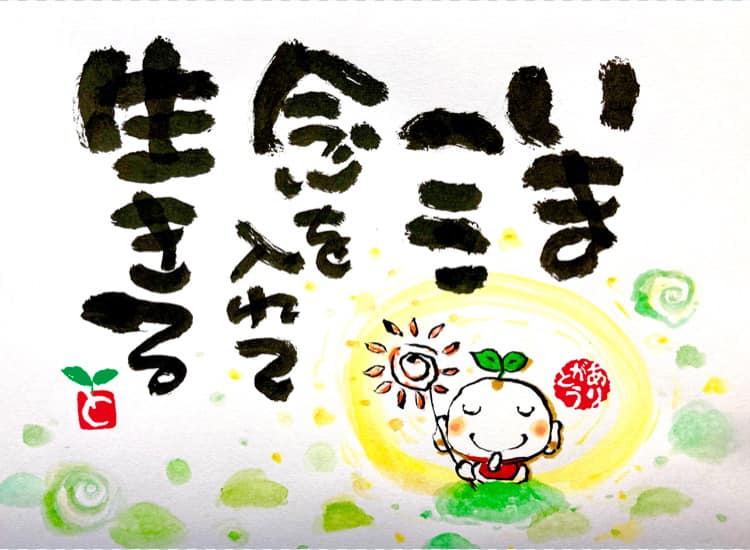 いま
ここ
念を
入れて
生きる
ありがとう
と